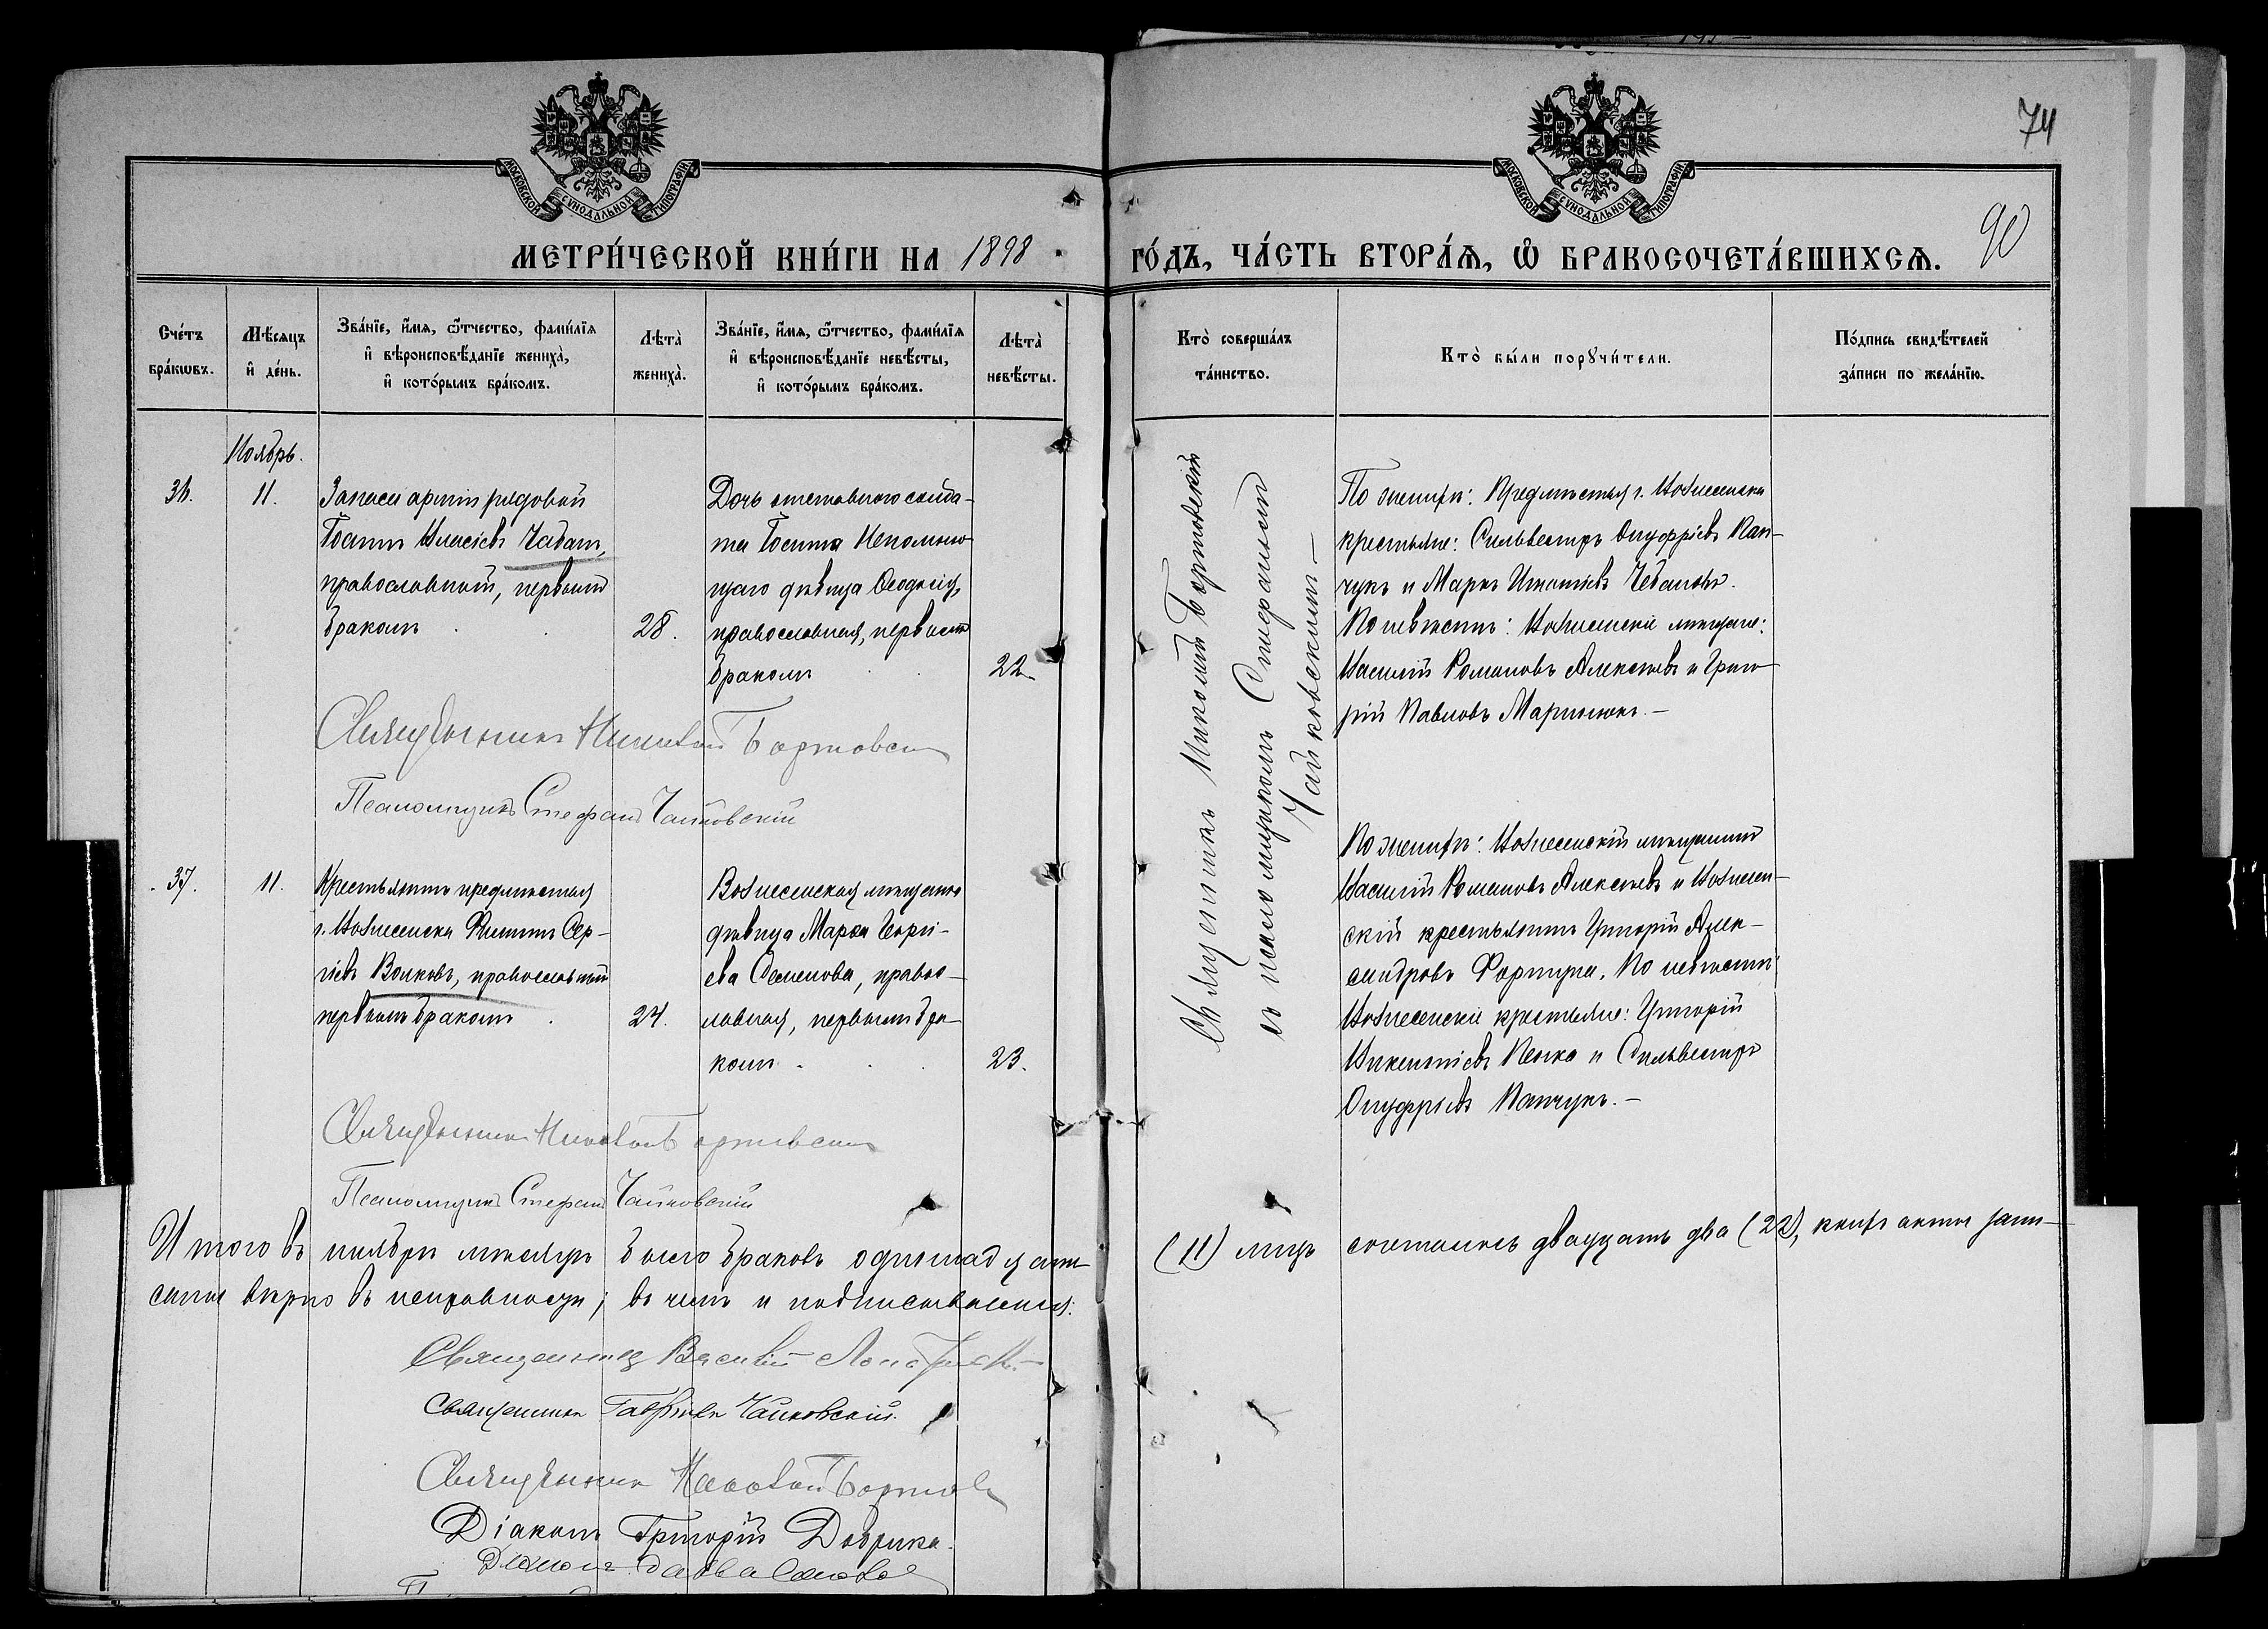 74
МОСКОВСКОЙ СѴНОДАЛЬНОЙ ТИПОГРАФІИ
МОСКОВСКОЙ СѴНОДАЛЬНОЙ ТИПОГРАФІИ
МЕТРИ́ЧЕСКОЙ КНИ́ГИ НА 1898
ГО́ДЪ, ЧА́СТЬ ВТОРА́Ѧ, Ѡ҆ БРАКОСОЧЕТА́ВШИХСѦ.
90
Сче́тъ бра́кѡвъ.
Мѣ́сяцъ и҆ де́нь.
Зва́нїе, и҆́мя, ѻ҆́тчество, фами́лїя
и҆ вѣроисповѣ́данїе жениха̀,
и҆ кото́рымъ бра́комъ.
Лѣта̀ жениха̀.
Зва́нїе, и҆́мя, ѻ҆́тчество, фами́лїя
и҆ вѣроисповѣ́данїе невѣ́сты,
и҆ кото́рымъ бра́комъ.
Лѣта̀ невѣ́сты.
Кто̀ соверша́лъ
та́инство.
Кто̀ бы́ли порꙋчи́тели.
По́дпись свидѣ́телей
за́писи по жела́нїю.
Ноябрь.
36.
11.
Запаса арміи рядовой
Іоаннъ Чабан,
православный, первымъ
бракомъ
28.
Дочь отставного солда-
та Іоанна Непомню-
щаго дѣвица Ѳеодосія,
православная, первымъ
бракомъ
22.
Священникъ Николай Бортовскій
съ псаломщикомъ Стефаномъ
Чайковскимъ.—
По женихѣ: Предмѣстья г. Вознесенска
крестьяне: Сильвестръ Онуфріевъ Ман-
чукъ и Маркъ Игнатіевъ Чебановъ.
По невѣстѣ: Вознесенскіе мѣщане:
Василій Романовъ Алексѣевъ и Григо-
рій Павловъ Мартынюкъ.—
Священникъ Николай Бортовскій
Псаломщикъ Стефанъ Чайковскій
37.
11.
Крестьянинъ предмѣстья
г. Вознесенска Филиппъ Сер-
гіевъ Волковъ, православный
первымъ бракомъ
24.
Вознесенская мѣщанка
дѣвица Марѳа Георгі-
ева Семенова, правос-
лавная, первымъ бра-
комъ
23.
По женихѣ: Вознесенскій мѣщанинъ
Василій Романовъ Алексѣевъ и Вознесен-
скій крестьянинъ Григорій Алек-
сандровъ Фортуна. По невѣстѣ:
Вознесенскіе крестьяне: Григорій
Викентіевъ и Сильвестръ
Онуфріевъ Манчукъ.—
Священникъ Николай Бортовскій
Псаломщикъ Стефанъ Чайковскій
Итого въ ноябрѣ мѣсяцѣ было браковъ одиннадцать (11) лицъ сочталось двадцать два (22), книга актов запи-
сана вѣрно въ исправности; въ чемъ и подписываемся:
Священникъ Василій
Священникъ Гавріилъ Чайковскій.
Священникъ Николай Бортов
Діаконъ Григорій Добрика.
Діаконъ